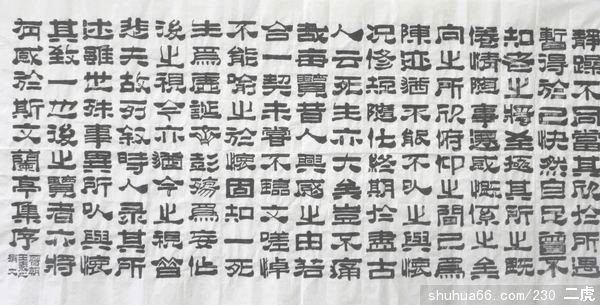 靜躁不同當其欣於所遇
暫得於己快然自足曾不
知老之將至極其所之既
倦情隨事遷感慨係之矣
向之所欣俯仰之間已為
陳迹猶不能不以之興懷
況修短隨化終期於盡古
人云死生亦大矣豈不痛
哉每覽昔人興感之由若
合一契未嘗不臨文嗟悼
不能喻之於懷固知一死
生爲虛誕齊彭殤爲妄作
後之視今亦猶今之視昔
悲夫故列敘時人录其所
述雖世殊事異所以興懷
其致一也後之覽者亦將
有感於斯文蘭亭集序
shuhua66.com/230 二虎